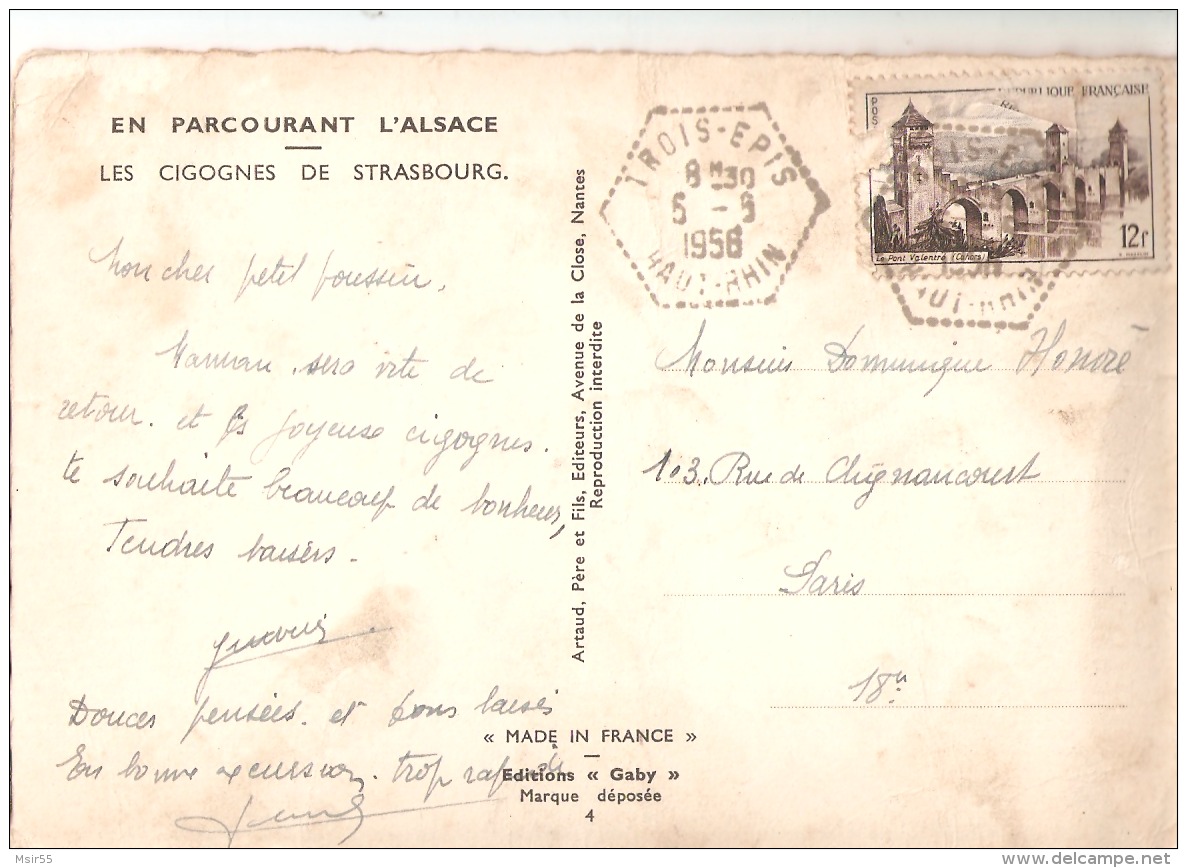 EN PARCOURANT L'ALSACE
LES CIGOGNES DE STRASBOURG.
Mon cher petit poussin.
Maman sera vite de
retour. et les joyeuses cigognes.
te souhaite beaucoup de bonheur,
Tendres baisers -
Douces pensées. et bons baisés
En bonne excursion. trop rapide
Artaud, Père et Fils, Editeurs, Avenue de la Close, Nantes
Reproduction interdite
« MADE IN FRANCE »
Editions « Gaby »
Marque déposée
4
TROIS-EPIS
8H30
5 - 5
1958
HAUT-RHIN
REPUBLIQUE FRANÇAISE
POS
12f
Le Pont Valentré (Cahors)
HAUT-RHIN
Monsieur Dominique Honoré
103. Rue de Clignancourt
Paris
18e
Msir55
www.delcampe.net